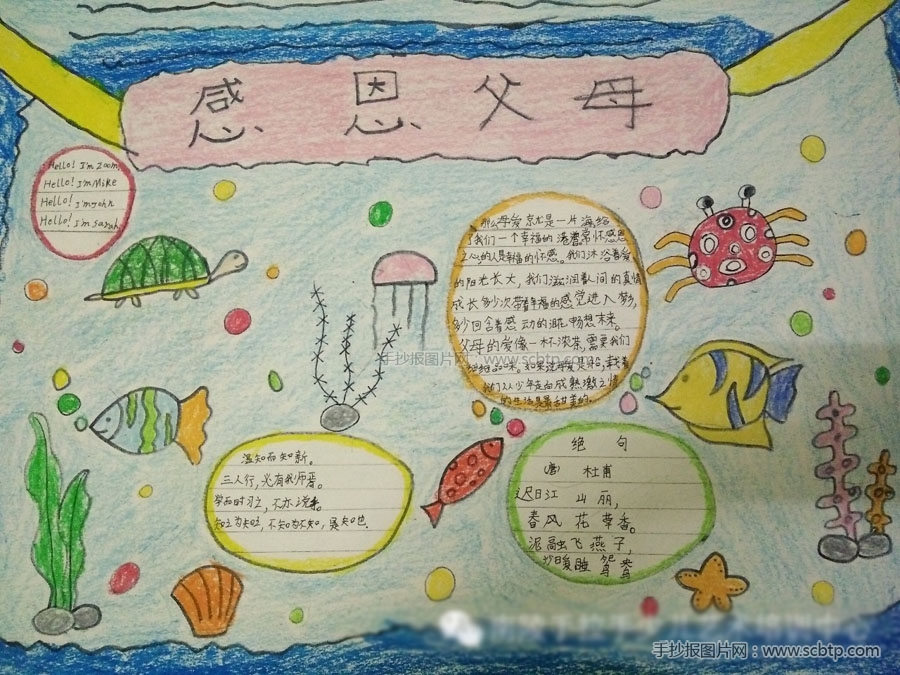 感恩父母
Hello! I'm Zoom
Hello! I'm Mike
Hello! I'm John
Hello! I'm Sarah
那么母爱就是一片海给
了我们一个幸福的港湾常怀感恩
之心的人是幸福的怀感。我们沐浴着爱
的阳光长大，我们滋润着人间的真情
成长多少次带着幸福的感觉进入梦，
多少回含着感动的泪 畅想未来。
父母的爱像一杯浓茶，需要我们
细细品味。如果这母爱是船，载着
我们从少年走向成熟
的生活是最甜美的.
手抄报图片网：www.scbtp.com
温知而知新。
三人行，必有我师焉。
学而时习之，不亦说乎。
知之为知之，不知为不知，是知也.
绝 句
(唐) 杜甫
迟日江 山 丽，
春风 花 草香。
泥融飞 燕 子，
沙日暖睡 鸳鸯
手抄报图片网：www.scbtp.com